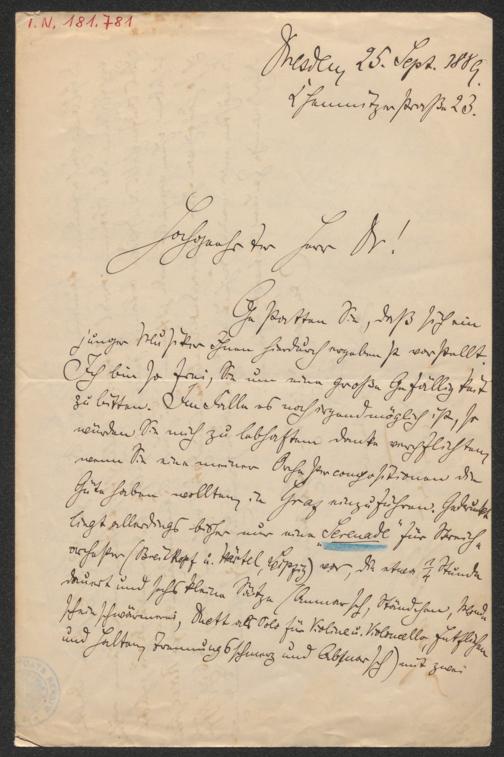 I.N. 181.781
Dresden, 25. Sept. 1889.
Chemnitzerstraße 23.
Hochgeehrter Herr Dr!
Gestatten Sie, daß sich ein
junger Musiker Ihnen hierdurch ergebenst vorstellt.
Ich bin so frei, Sie um eine große Gefälligkeit
zu bitten. Im Falle es noch irgend möglich ist, so
würden Sie mich zu lebhaftem Danke verpflichten,
wenn Sie eine meiner Orchestercompositionen die
Güte haben wollten, in Graz einzuführen. Gedruckt
liegt allerdings bisher nur eine „Serenade" für Streich-
orchester (Breitkopf u. Härtel, Leipzig) vor, die etwa ¾ Stunde
dauert und sechs kleine Sätze (Anmarsch, Ständchen, Mond-
scheinschwärmerei, Duett als Solo für Violine u. Violoncello,
und Trennungsschmerz und Abmarsch) mit zwei